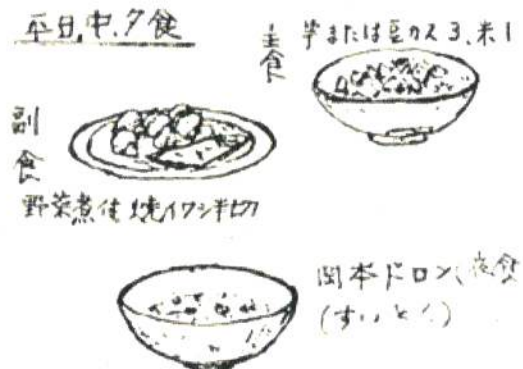 平日、中、夕食
主食 芋または豆カス3、米1
副食
野菜煮付 焼イワシ半切
関本ドロン(夜食
(すいとん)